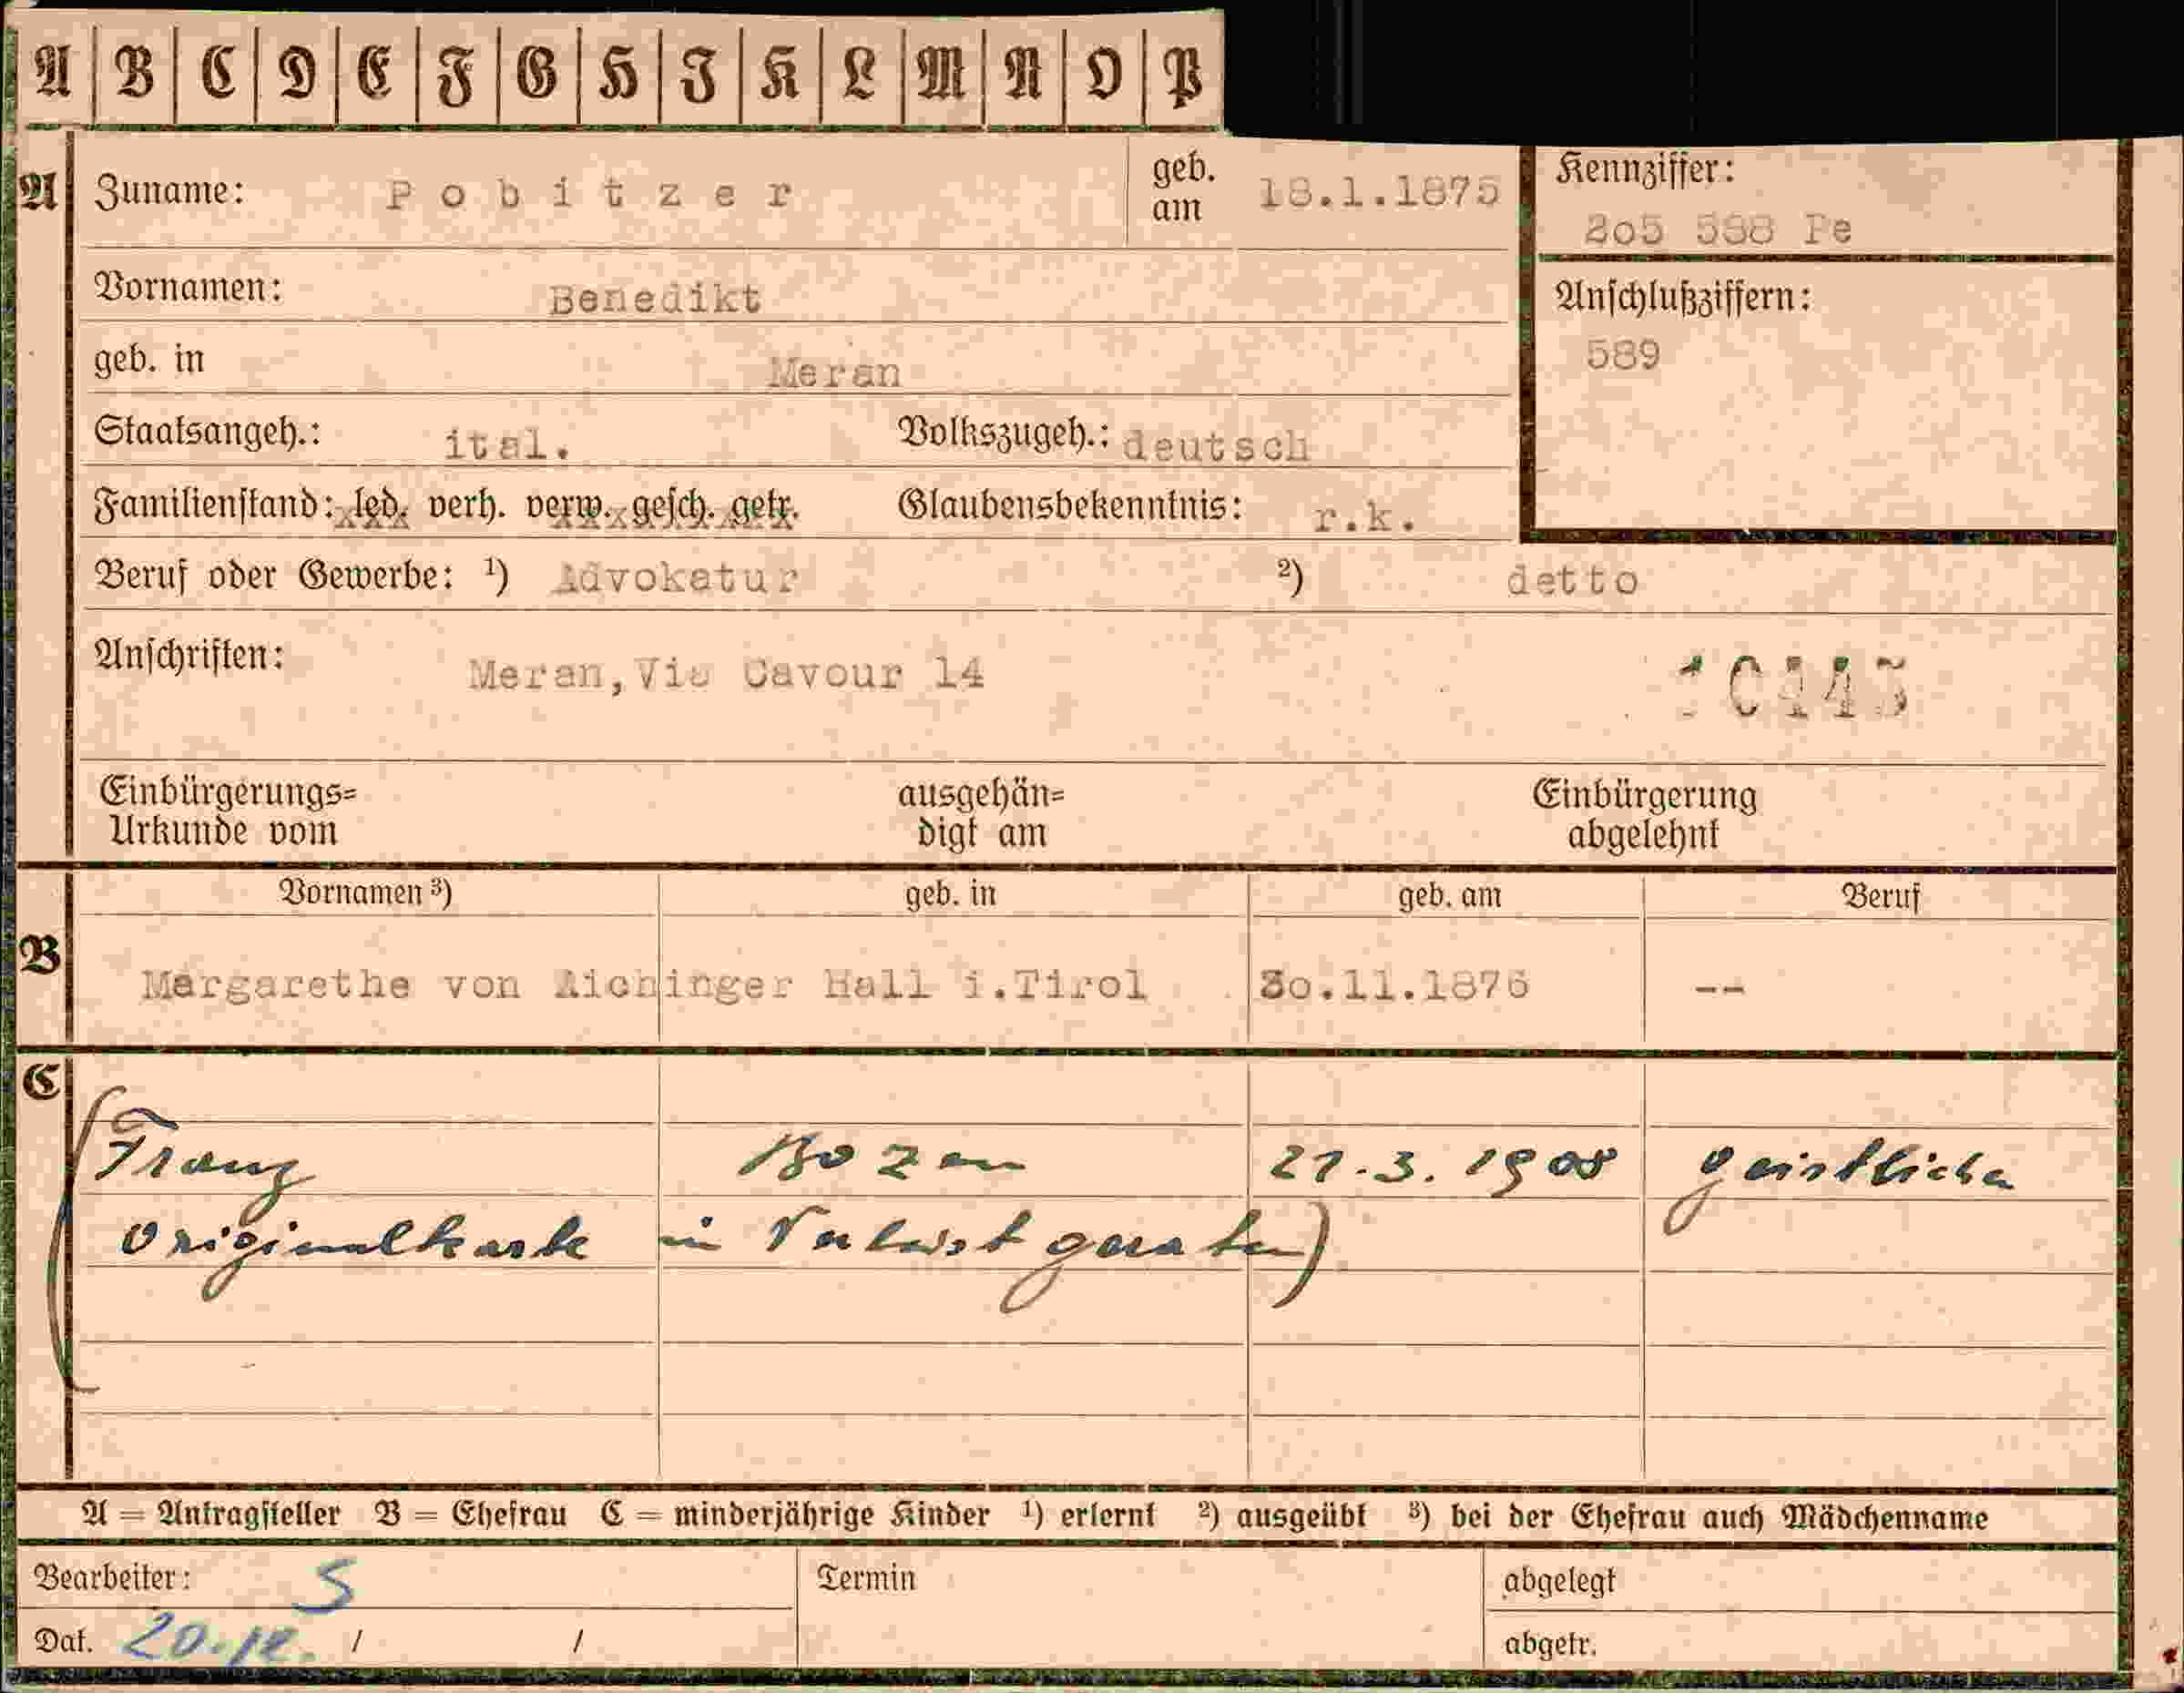 A B C D E F G H I K L M N O P
A Zuname: Pobitzer geb. am 18.1.1875 Kennziffer:
205 588 Pe
Vornamen: Benedikt Anschlußziffern:
589
geb. in Meran
Staatsangeh.: ital. Volkszugeh.: deutsch
Familienstand: led. verh. verw. gesch. getr. Glaubensbekenntnis: r.k.
Beruf oder Gewerbe: ¹) Advokatur ²) detto
Anschriften: Meran, Via Cavour 14
Einbürgerungs= ausgehän= Einbürgerung
Urkunde vom digt am abgelehnt
Vornamen ³) geb. in geb. am Beruf
B Margarethe von Aichinger Hall i.Tirol 30.11.1876 --
C
(Franz Bozen 21.3.1908 geistlicher
Originalkarte in Verlust geraten)
A = Antragsteller B = Ehefrau C = minderjährige Kinder ¹) erlernt ²) ausgeübt ³) bei der Ehefrau auch Mädchenname
Bearbeiter: S Termin abgelegt
Dat. 20.12. / / abgetr.